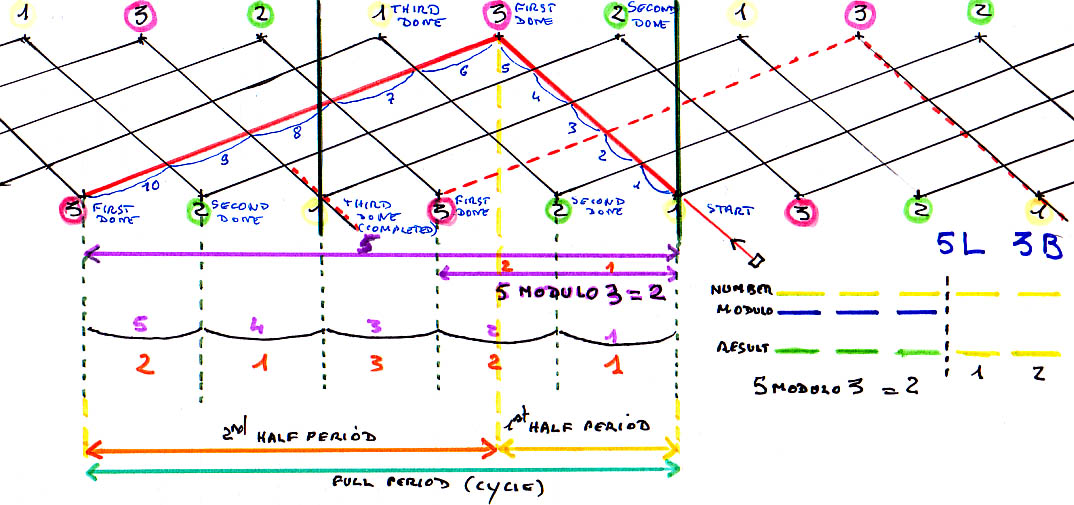 1 3 2 1 THIRD DONE 3 FIRST DONE 2 SECOND DONE 1 3 2
6 5
7 4
8 3
9 2
10 1
3 FIRST DONE 2 SECOND DONE 1 THIRD DONE (COMPLETED) 3 FIRST DONE 2 SECOND DONE 1 START 3 2 1
5
2 1
5 MODULO 3 = 2
5L 3B
NUMBER
MODULO
RESULT
1 2
5 MODULO 3 = 2
5 4 3 2 1
2 1 3 2 1
2nd HALF PERIOD 1st HALF PERIOD
FULL PERIOD (CYCLE)